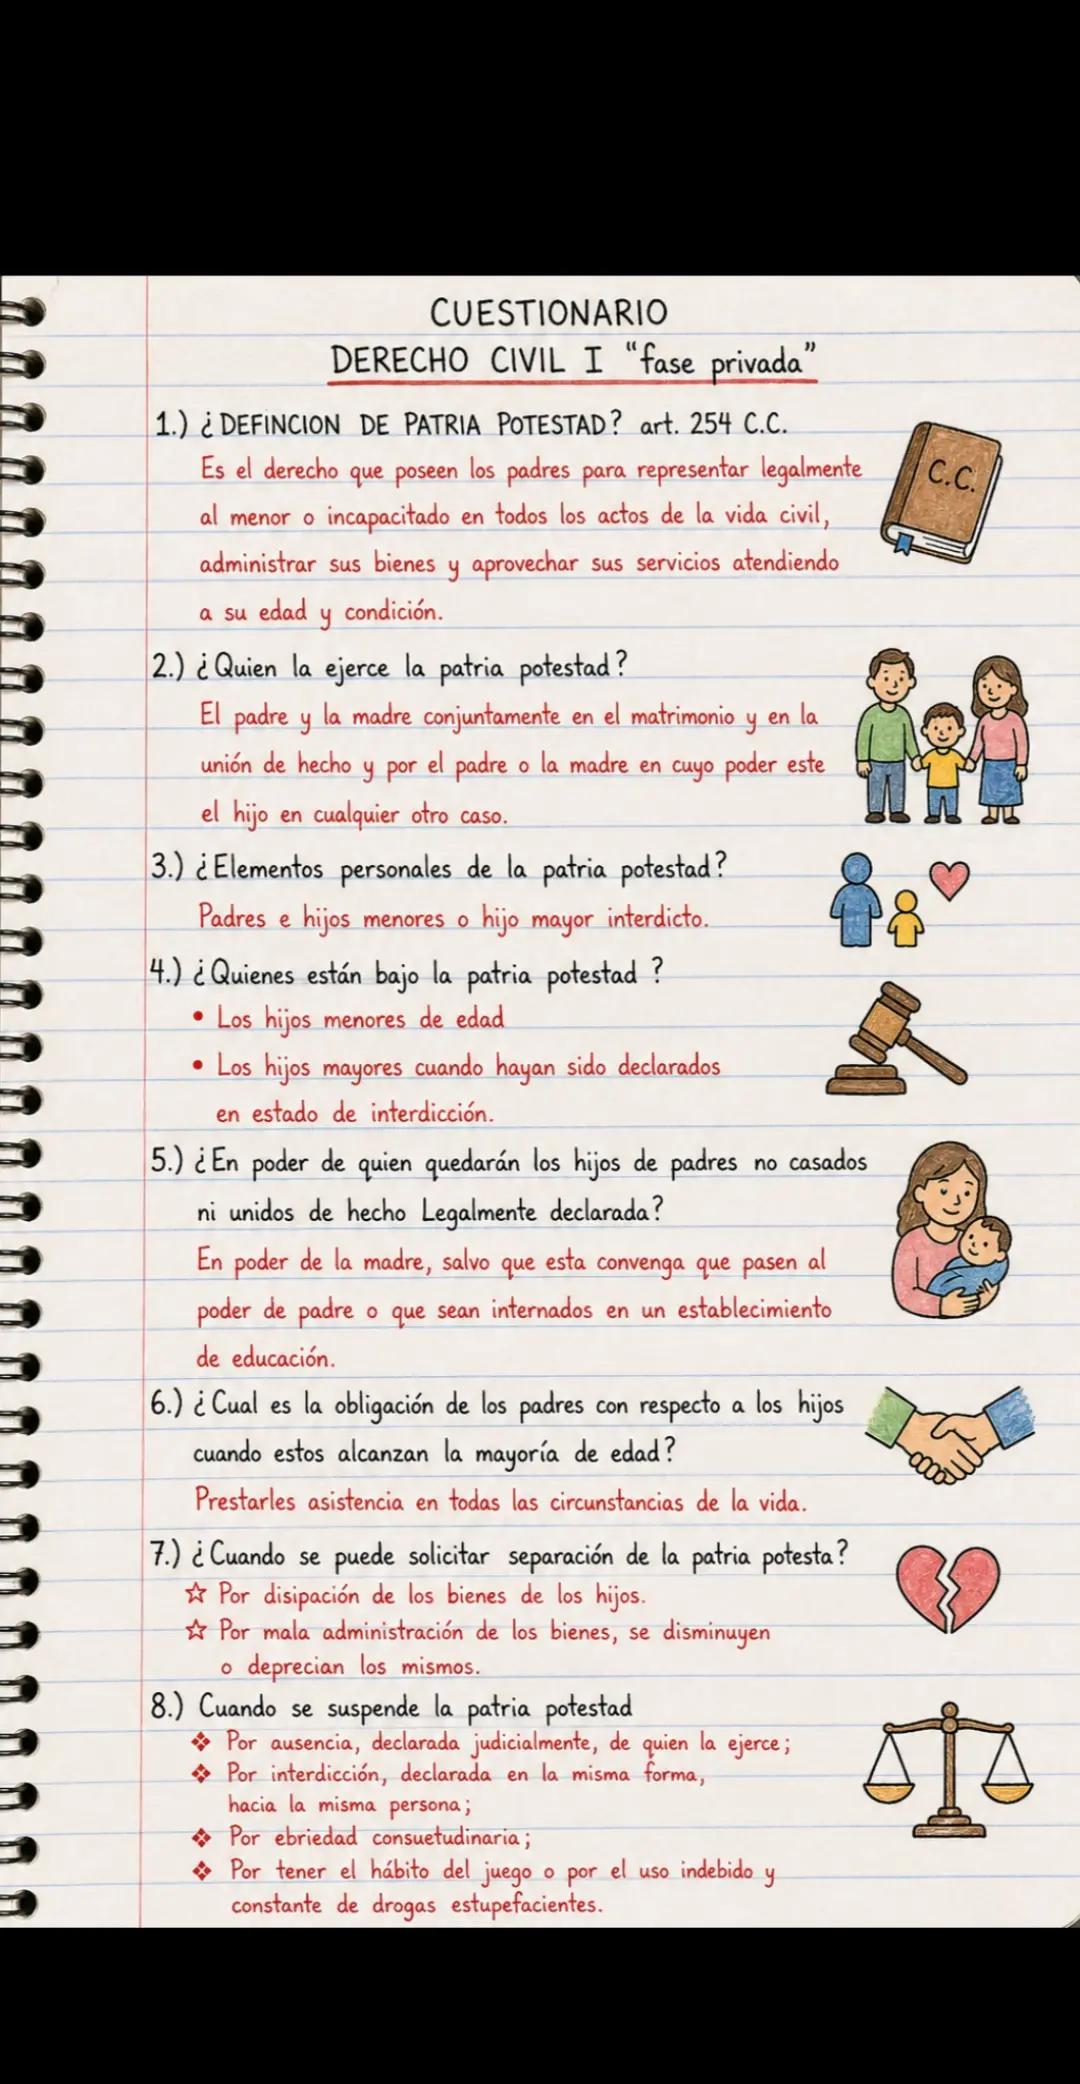 CUESTIONARIO
DERECHO CIVIL I "fase privada"
1.) ¿DEFINCION DE PATRIA POTESTAD? art. 254 C.C.
Es el derecho que poseen los padres para representar legalmente
al menor o incapacitado en todos los actos de la vida civil,
administrar sus bienes y aprovechar sus servicios atendiendo
a su edad y condición.
C.C.
2.) ¿Quien la ejerce la patria potestad?
El padre y la madre conjuntamente en el matrimonio y en la
unión de hecho y por el padre o la madre en cuyo poder este
el hijo en cualquier otro caso.
3.) ¿Elementos personales de la patria potestad?
Padres e hijos menores o hijo mayor interdicto.
4.) ¿Quienes están bajo la patria potestad ?
• Los hijos menores de edad
• Los hijos mayores cuando hayan sido declarados
en estado de interdicción.
5.) ¿En poder de quien quedarán los hijos de padres no casados
ni unidos de hecho Legalmente declarada?
En poder de la madre, salvo que esta convenga que pasen al
poder de padre o que sean internados en un establecimiento
de educación.
6.) ¿Cual es la obligación de los padres con respecto a los hijos
cuando estos alcanzan la mayoría de edad?
Prestarles asistencia en todas las circunstancias de la vida.
7.) ¿Cuando se puede solicitar separación de la patria potesta?
☆ Por disipación de los bienes de los hijos.
☆ Por mala administración de los bienes, se disminuyen
o deprecian los mismos.
8.) Cuando se suspende la patria potestad
❖ Por ausencia, declarada judicialmente, de quien la ejerce;
❖ Por interdicción, declarada en la misma forma,
hacia la misma persona;
❖ Por ebriedad consuetudinaria;
❖ Por tener el hábito del juego o por el uso indebido y
constante de drogas estupefacientes.